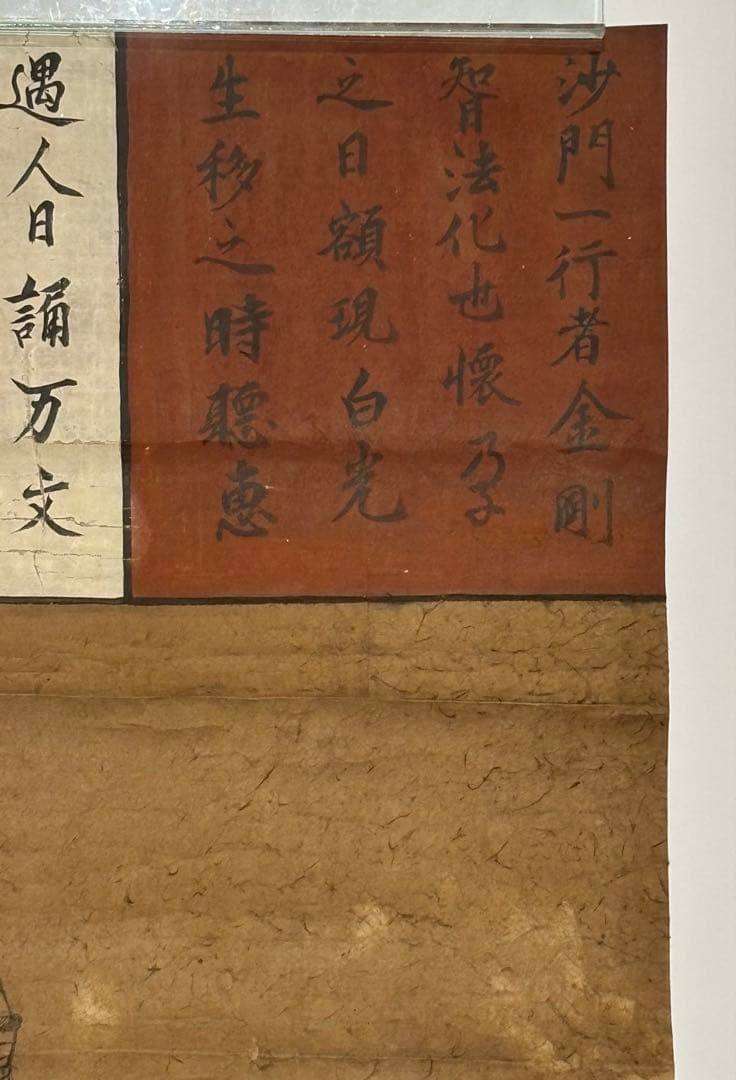 沙門一行者金剛
智法化也懐乃子
之日額現白光
生移之時聽恵
遇人日誦万文